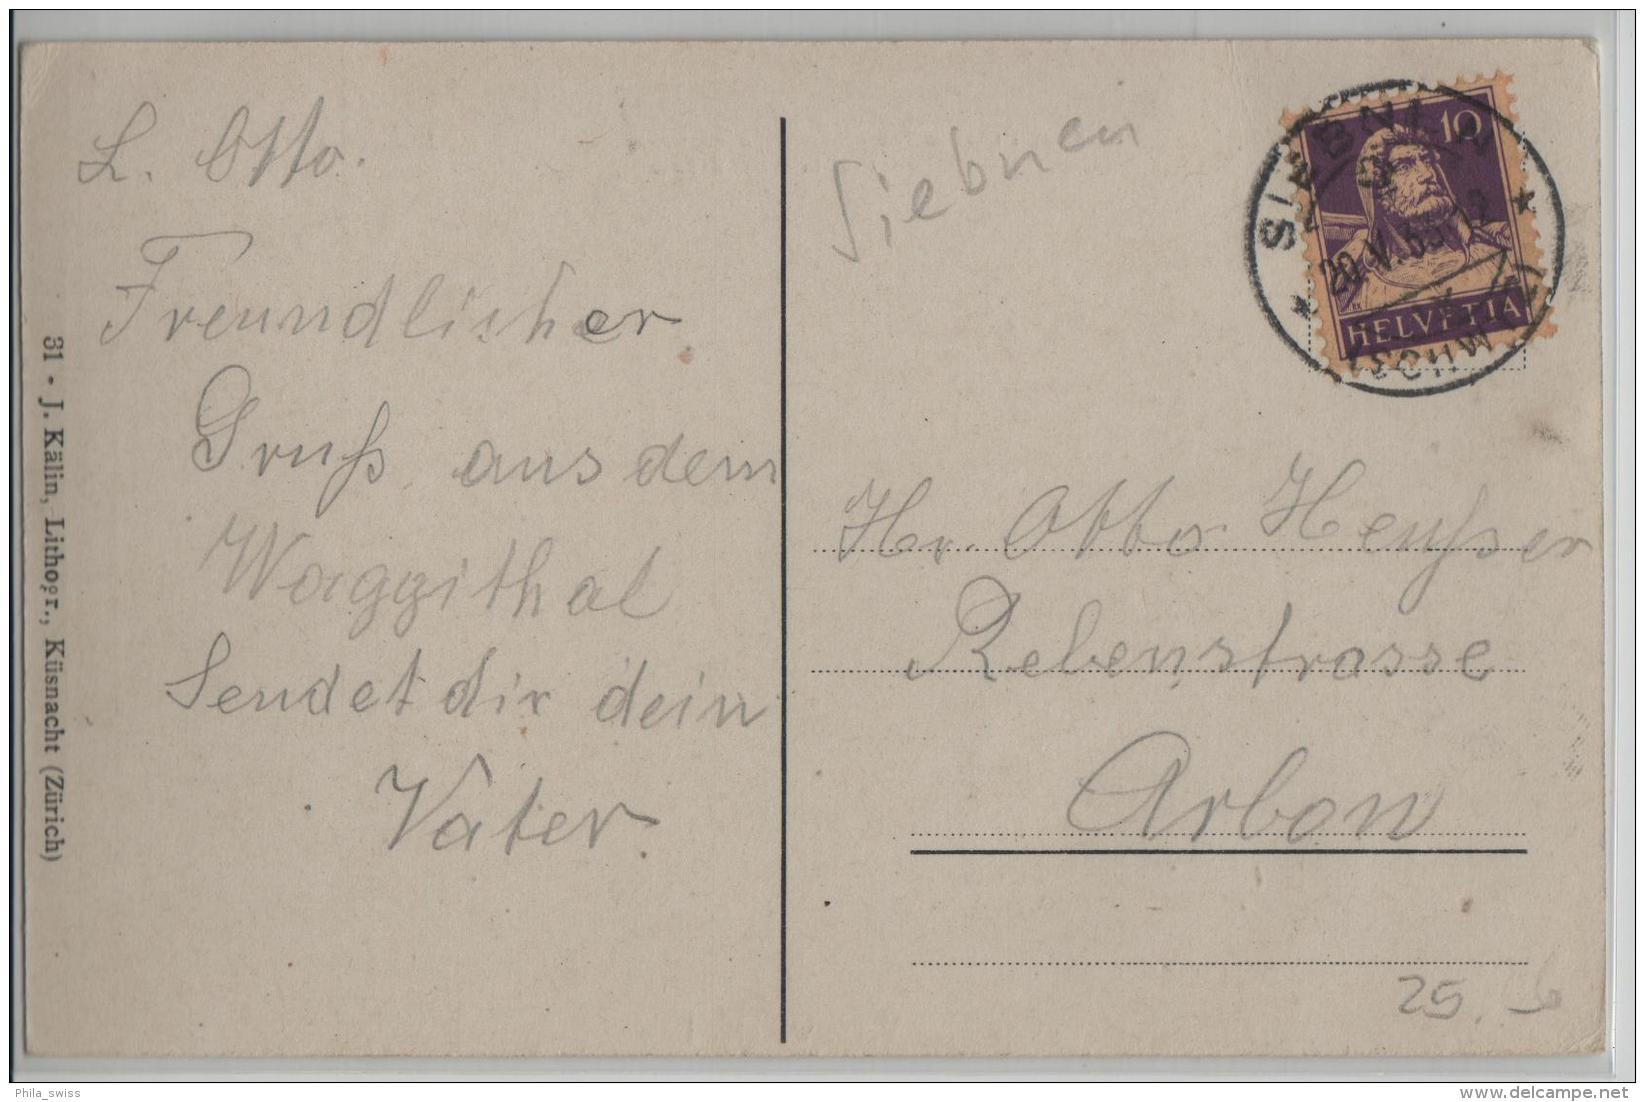 L. Otto.
Freundlicher
Gruß aus dem
Waggithal
Sendet dir dein
Vater.
31 • J. Kälin, Lithogr., Küsnacht (Zürich)
Siebnen
10
HELVETIA
SIEBNEN
20.V.
(SCHWYZ)
Hr. Otto
Rebenstrasse
Arbon
25.
Phila_swiss
delcampe.net